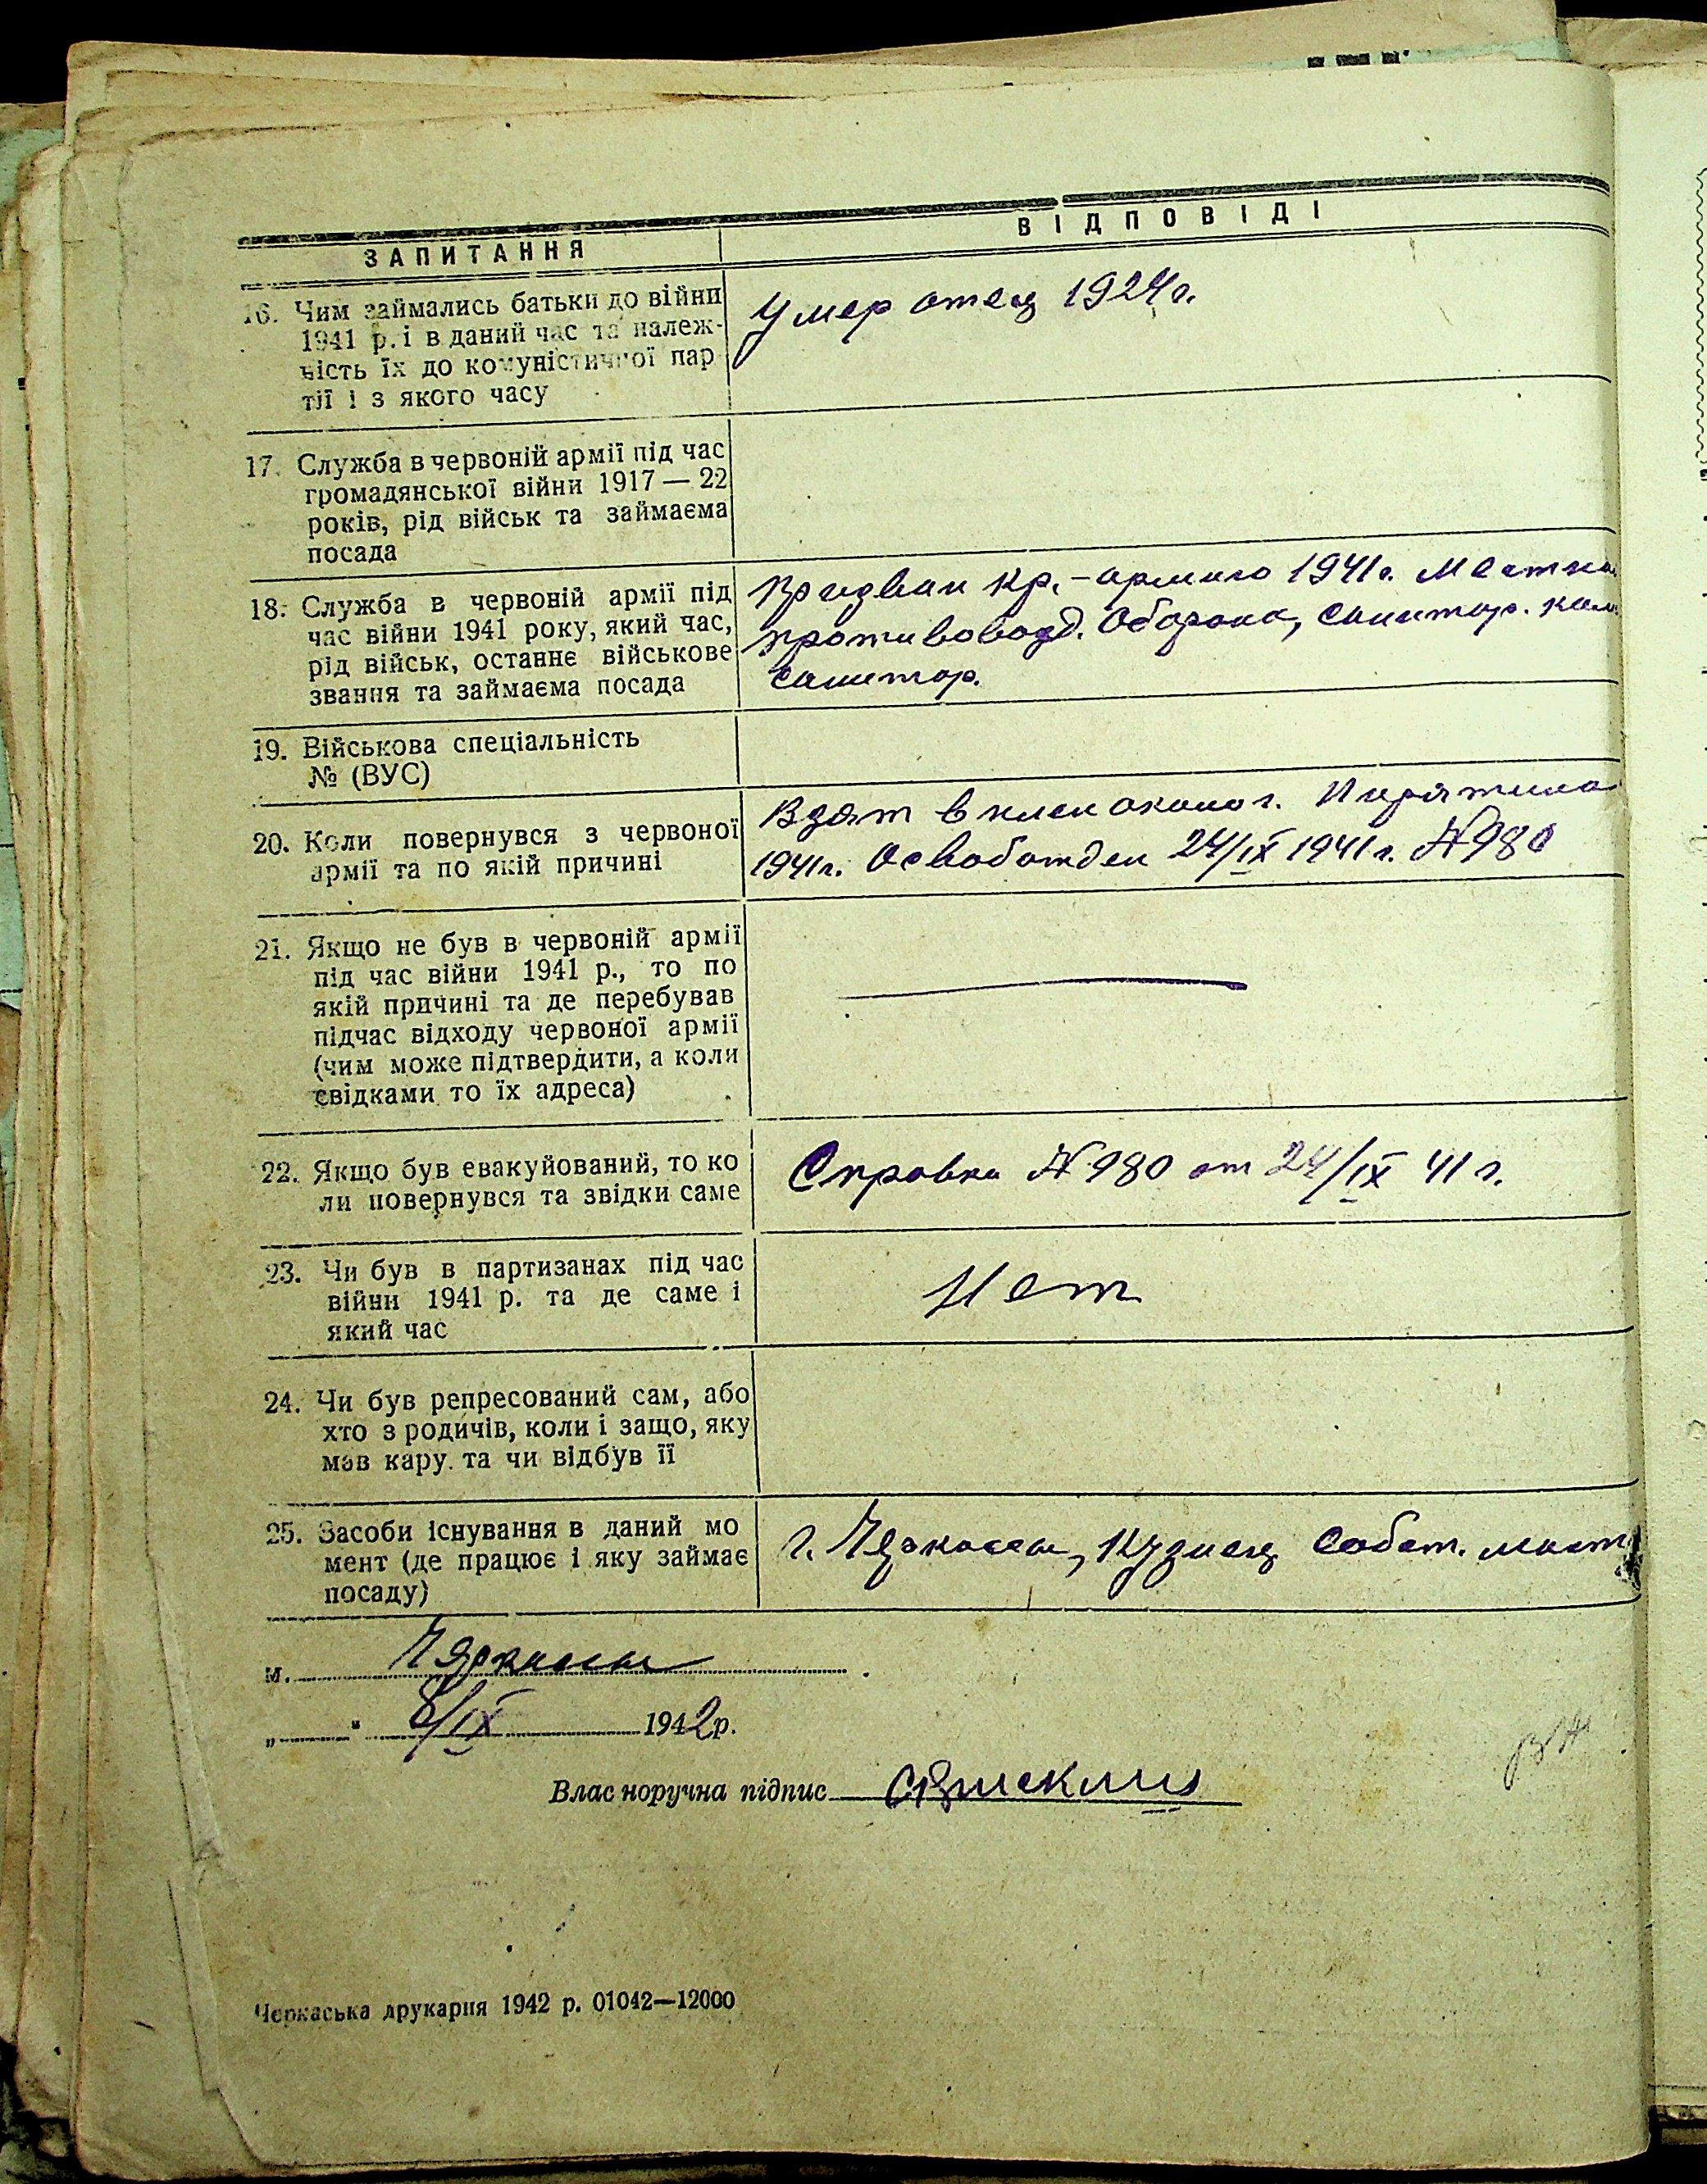 ЗАПИТАННЯ
ВІДПОВІДІ
16. Чим займались батьки до війни
1941 р. і в даний час та належ-
ність їх до комуністичної пар
тії і з якого часу
Умер отец 1924 г.
17. Служба в червоній армії під час
громадянської війни 1917 — 22
років, рід військ та займаєма
посада
18. Служба в червоній армії під
час війни 1941 року, який час,
рід військ, останнє військове
звання та займаєма посада
Призван кр.-армию 1941 г. Местна
противовозд. Оборона, санитар. ком
санитар.
19. Військова спеціальність
№ (ВУС)
20. Коли повернувся з червоної
армії та по якій причині
Взят в плен около г. Пирятина
1941 г. Освобожден 24/IX 1941 г. №980
21. Якщо не був в червоній армії
під час війни 1941 р., то по
якій причині та де перебував
підчас відходу червоної армії
(чим може підтвердити, а коли
свідками то їх адреса)
22. Якщо був евакуйований, то ко
ли повернувся та звідки саме
Справка №980 от 24/IX 41 г.
23. Чи був в партизанах під час
війни 1941 р. та де саме і
який час
Нет
24. Чи був репресований сам, або
хто з родичів, коли і защо, яку
мав кару та чи відбув її
25. Засоби існування в даний мо
мент (де працює і яку займає
посаду)
г. Черкассы, Кузнец собст. маст
м. Черкассы
„ “ 8/IX 1942 р.
Влас норучна підпис
Черкаська друкарня 1942 р. 01042—12000